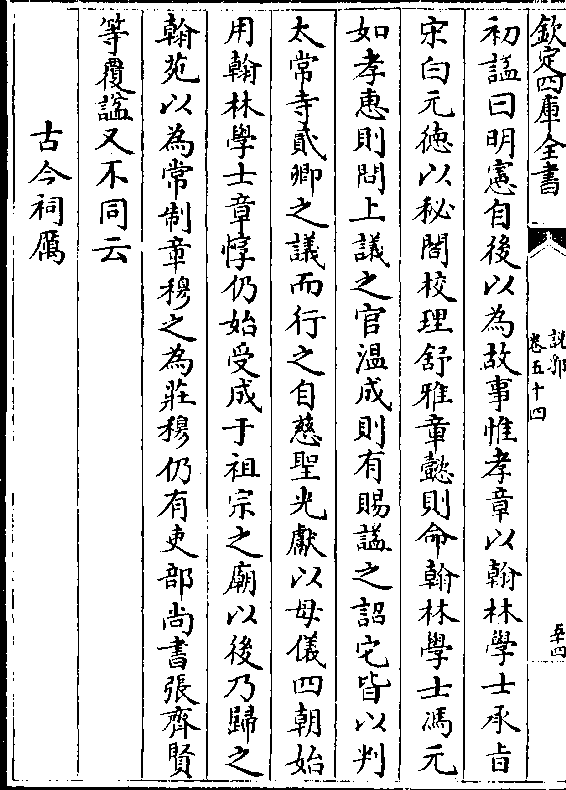 欽定四庫全書
說郛
卷五十四
五十四
初謚曰明憲自後以為故事惟孝章以翰林學士承㫖
宋白元徳以秘閣校理舒雅章懿則命翰林學士馮元
如孝惠則問上議之官温成則有賜謚之詔它皆以判
太常寺貳卿之議而行之自慈聖光獻以母儀四朝始
用翰林學士章惇仍始受成于祖宗之廟以後乃歸之
翰苑以為常制章穆之為莊穆仍有吏部尚書張齊賢
等覆謚又不同云
古今祠厲